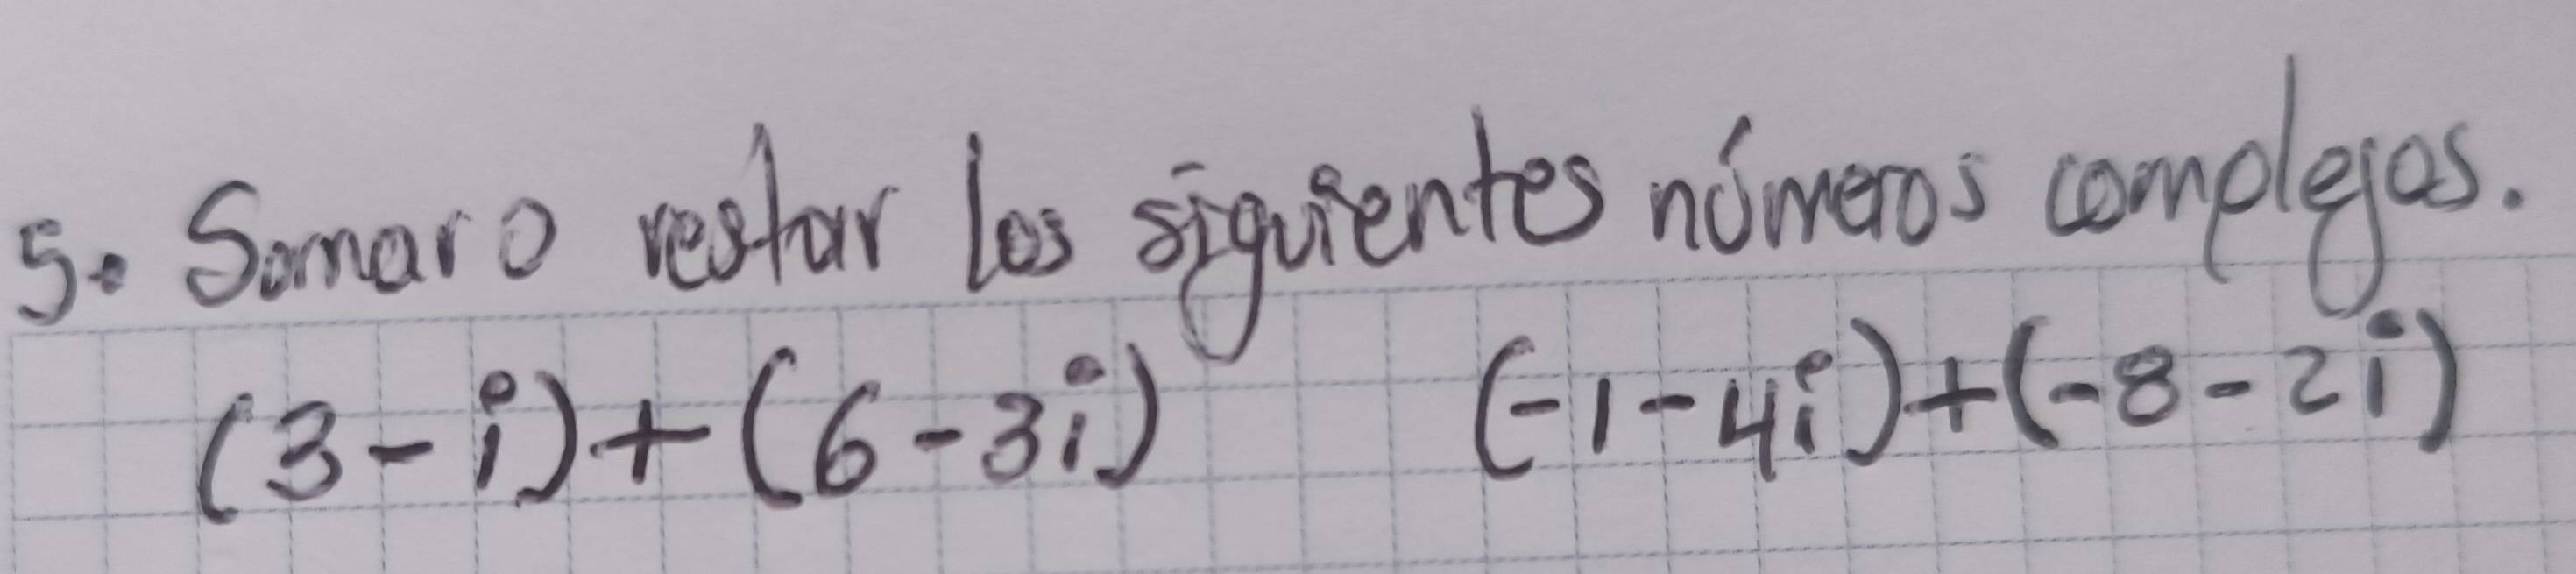 5. Sumar o restar los siguientes números complejos.
(3-i)+(6-3i) (-1-4i)+(-8-2i)